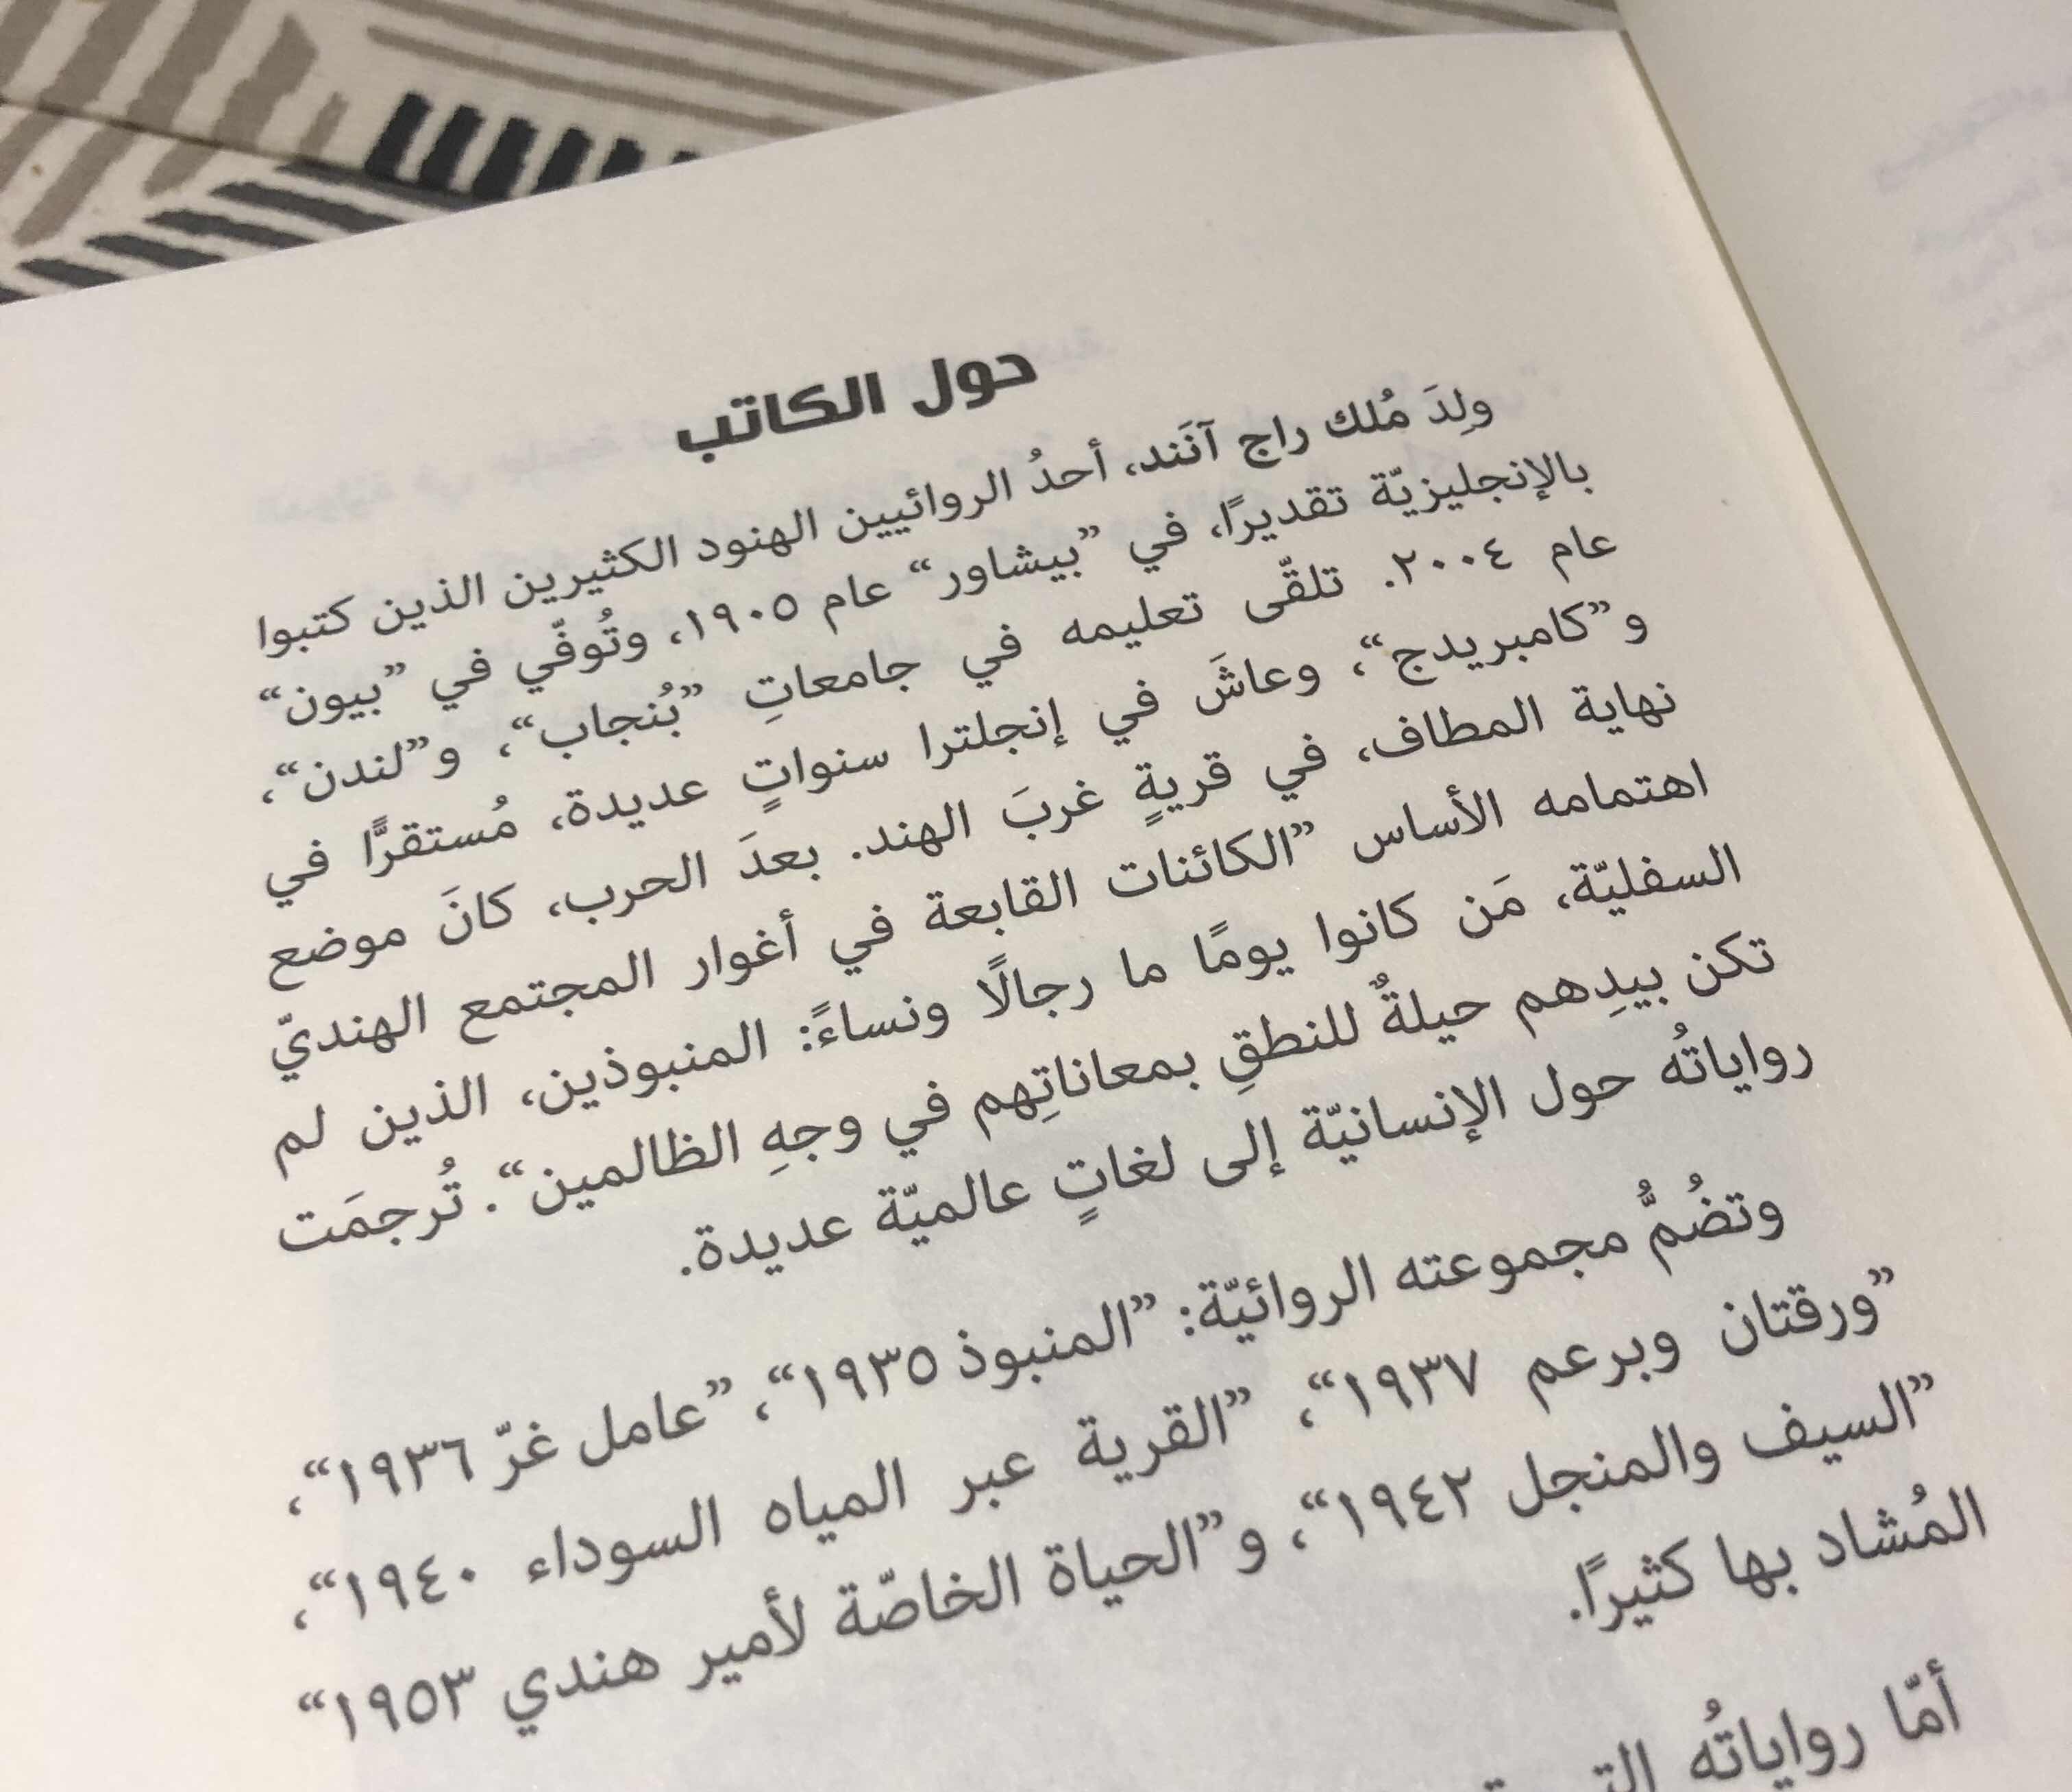 حول الكاتب
ولِدَ مُلك راج آنَند، أحدُ الروائيين الهنود الكثيرين الذين كتبوا
بالإنجليزيّة تقديرًا، في ”بيشاور“ عام ١٩٠٥، وتُوفّي في ”بيون“
عام ٢٠٠٤. تلقّى تعليمه في جامعاتِ ”بُنجاب“، و”لندن“،
و”كامبريدج“، وعاشَ في إنجلترا سنواتٍ عديدة، مُستقرًّا في
نهاية المطاف، في قريةٍ غربَ الهند. بعدَ الحرب، كانَ موضع
اهتمامه الأساس ”الكائنات القابعة في أغوار المجتمع الهنديّ
السفليّة، مَن كانوا يومًا ما رجالًا ونساءً: المنبوذين، الذين لم
تكن بيدِهم حيلةٌ للنطقِ بمعاناتِهم في وجهِ الظالمين“. تُرجمَت
رواياتُه حول الإنسانيّة إلى لغاتٍ عالميّة عديدة.
وتضُمُّ مجموعته الروائيّة: ”المنبوذ ١٩٣٥“، ”عامل غرّ ١٩٣٦“،
”ورقتان وبرعم ١٩٣٧“، ”القرية عبر المياه السوداء ١٩٤٠“،
”السيف والمنجل ١٩٤٢“، و”الحياة الخاصّة لأمير هندي ١٩٥٣“
المُشاد بها كثيرًا.
أمّا رواياتُه